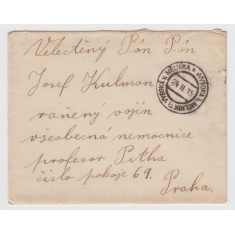 Velectěný Pán Pán
Josef Kulman
raněný vojín
všeobecná nemocnice
profesor Pitha
číslo pokoje 69.
Praha.